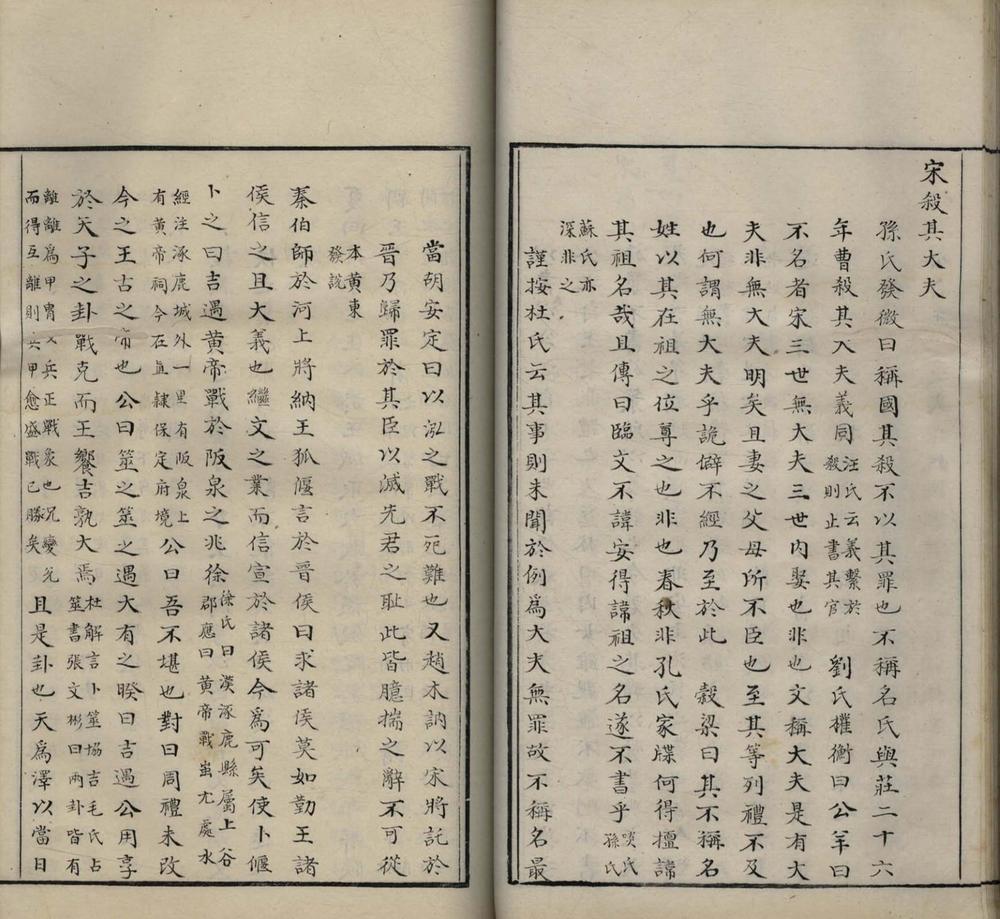 宋殺其大夫
孫氏發微曰稱國其殺不以其罪也不稱名氏與莊二十六
年曹殺其大夫義同汪氏云義繫於殺則止書其官劉氏權衡曰公羊曰
不名者宋三世無大夫三世內娶也非也文稱大夫是有大
夫非無大夫明矣且妻之父母所不臣也至其等列禮不及
也何謂無大夫乎詭僻不經乃至於此 穀梁曰其不稱名
姓以其在祖之位尊之也非也春秋非孔氏家牒何得擅諱
其祖名哉且傳曰臨文不諱安得諱祖之名遂不書乎啖氏孫氏
蘇氏亦深非之
謹按杜氏云其事則未聞於例為大夫無罪故不稱名最
當胡安定曰以泓之戰不死難也又趙木訥以宋將託於
晉乃歸罪於其臣以滅先君之恥此皆臆揣之辭不可從
本黃東發說
秦伯師於河上將納王狐偃言於晉侯曰求諸侯莫如勤王諸
侯信之且大義也繼文之業而信宣於諸侯今為可矣使卜偃
卜之曰吉遇黃帝戰於阪泉之兆徐氏曰漢涿鹿縣屬上谷郡應曰黃帝戰蚩尤處水
經注涿鹿城外一里有阪泉上有黃帝祠今在直隸保定府境公曰吾不堪也對曰周禮未改
今之王古之帝也公曰筮之筮之遇大有之睽曰吉遇公用享
於天子之卦戰克而王饗吉孰大焉杜解言卜筮協吉毛氏占筮書張文彬曰兩卦皆有
離離為甲冑又兵正戰象也況變兌而得互離則兵甲愈盛戰已勝矣且是卦也天為澤以當日